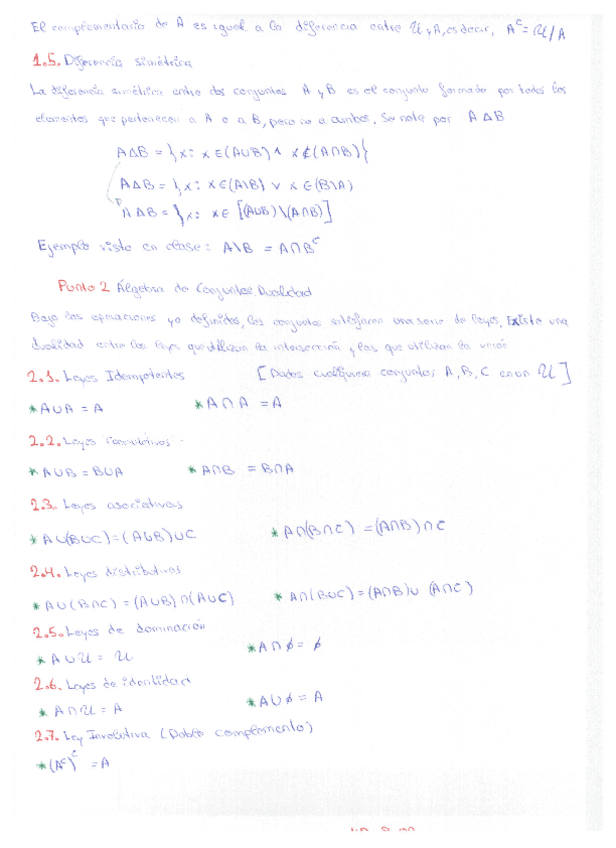 El complementario de A es igual a la diferencia entre U y A, es decir, Aᶜ = U/A
1.5. Diferencia simétrica
La diferencia simétrica entre dos conjuntos A y B es el conjunto formado por todos los
elementos que pertenecen a A o a B, pero no a ambos. Se nota por A Δ B
AΔB = }x: x ∈ (A∪B) ∧ x ∉ (A∩B)}
AΔB = }x: x ∈ (A\B) ∨ x ∈ (B\A)
AΔB = }x: x ∈ [(A∪B)\(A∩B)]
Ejemplo visto en clase: A\B = A∩Bᶜ
Punto 2 Álgebra de Conjuntos. Dualidad
Bajo las operaciones ya definidas, los conjuntos satisfacen una serie de leyes. Existe una
dualidad entre las leyes que utilizan la intersección y las que utilizan la unión
2.1. Leyes Idempotentes [Dados cualquiera conjuntos A, B, C en un U]
* A∪A = A * A∩A = A
2.2. Leyes Conmutativas
* A∪B = B∪A * A∩B = B∩A
2.3. Leyes asociativas
* A∪(B∪C) = (A∪B)∪C * A∩(B∩C) = (A∩B)∩C
2.4. Leyes distributivas
* A∪(B∩C) = (A∪B)∩(A∪C) * A∩(B∪C) = (A∩B)∪(A∩C)
2.5. Leyes de dominación
* A∪U = U * A∩∅ = ∅
2.6. Leyes de identidad
* A∩U = A * A∪∅ = A
2.7. Ley Involutiva (Doble complemento)
* (Aᶜ)ᶜ = A